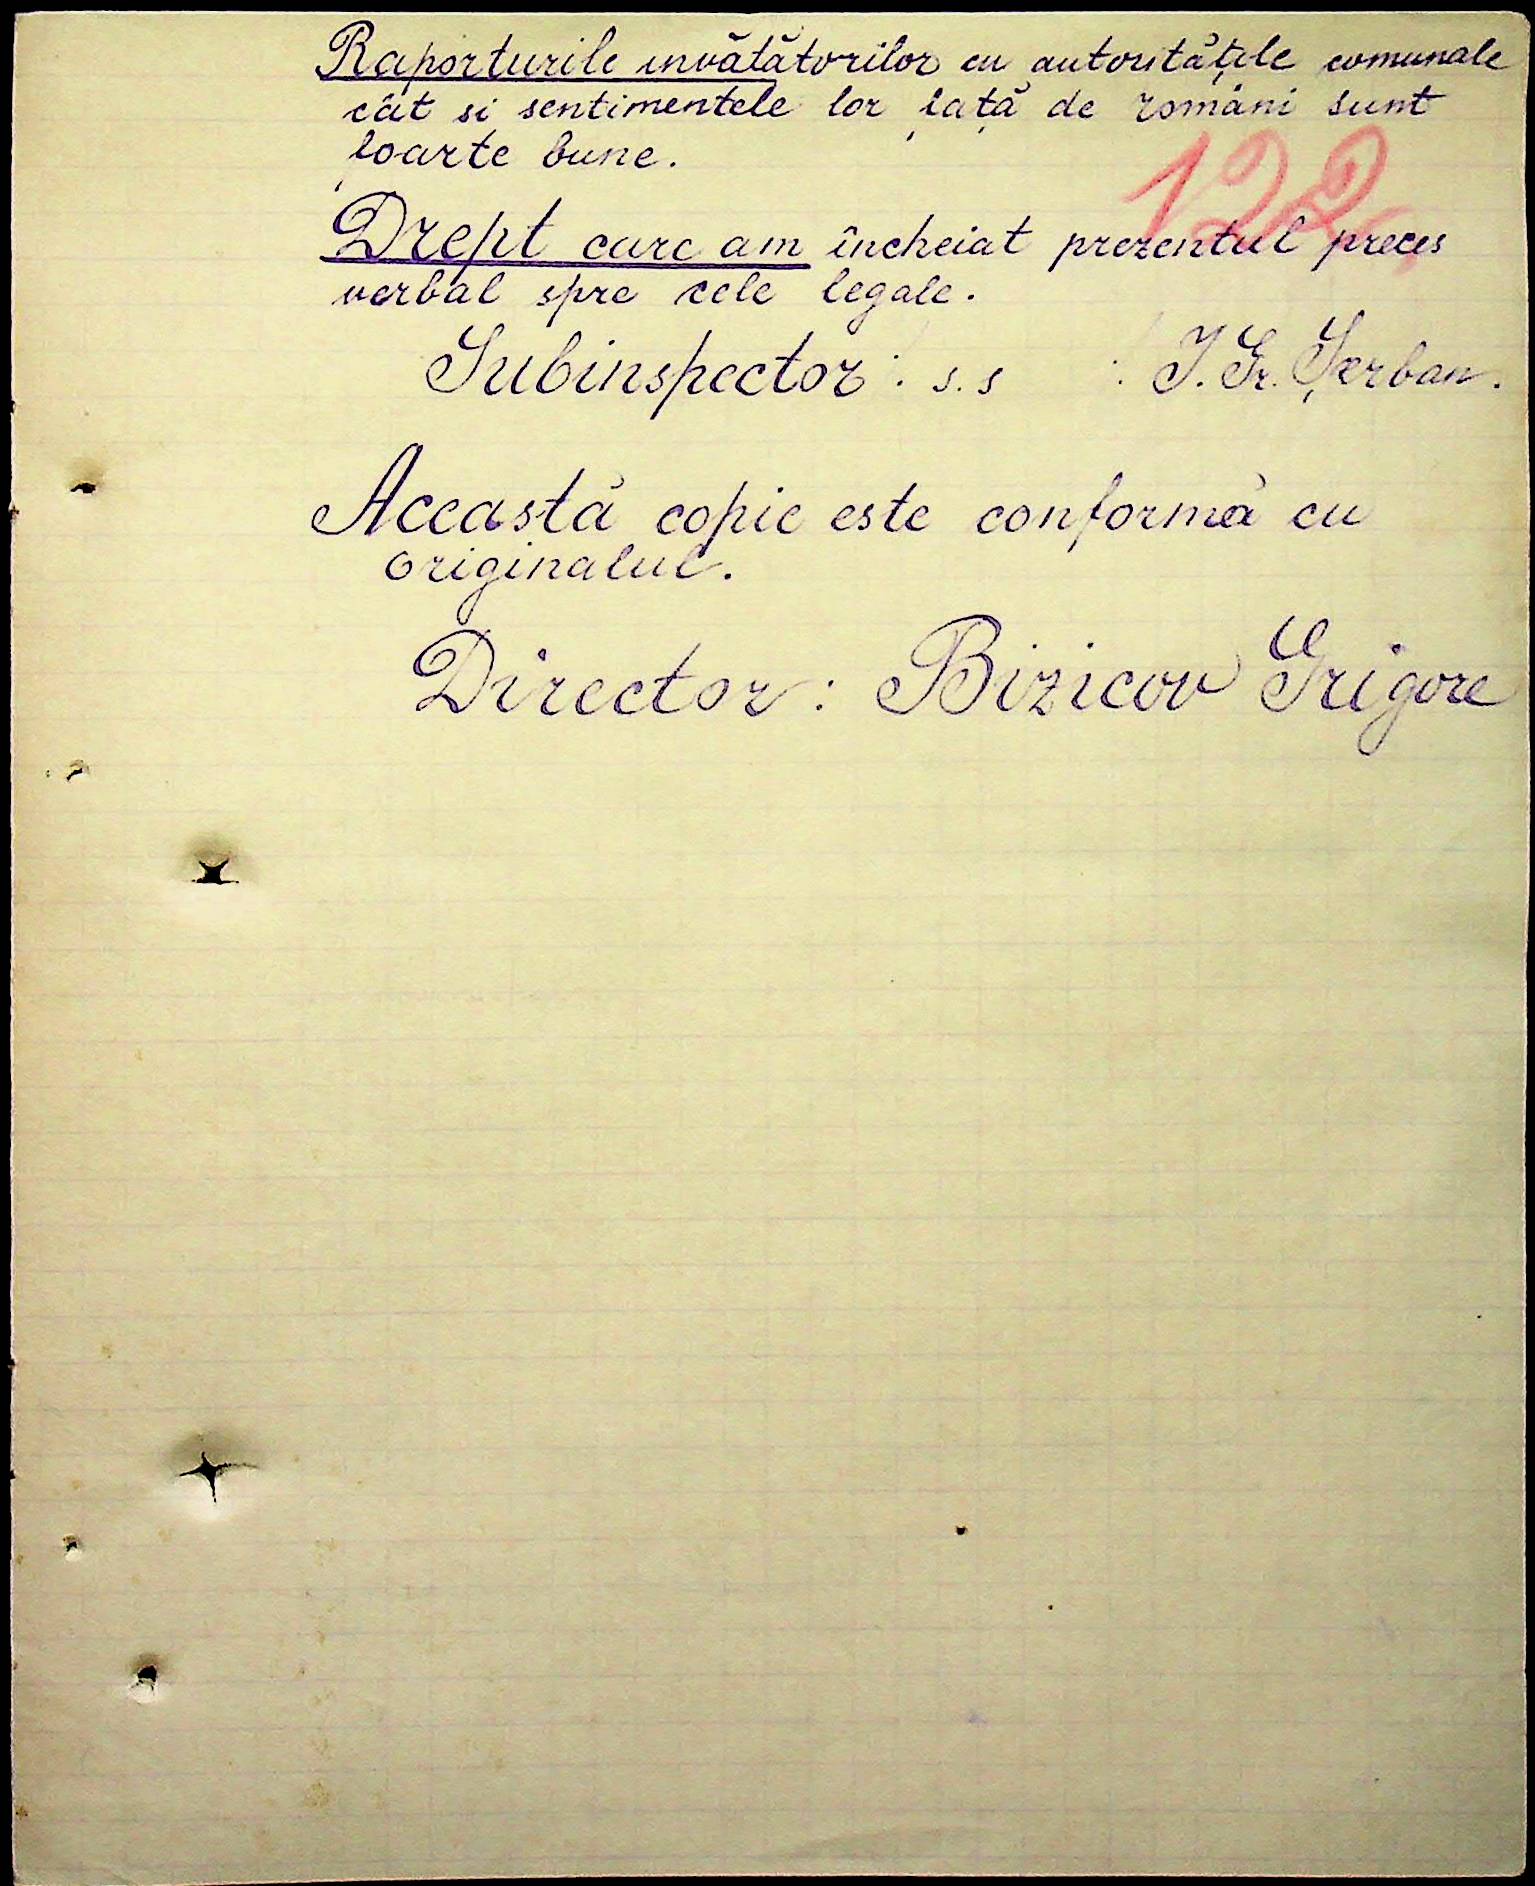 Raporturile invătătorilor cu autoritățile comunale
cât si sentimentele lor față de români sunt
foarte bune.
122
Drept care am încheiat prezentul preces
verbal spre cele legale.
Subinspector: s.s : I. Gr. Șerban.
Această copie este conformă cu
originalul.
Director: Bizicov Grigore